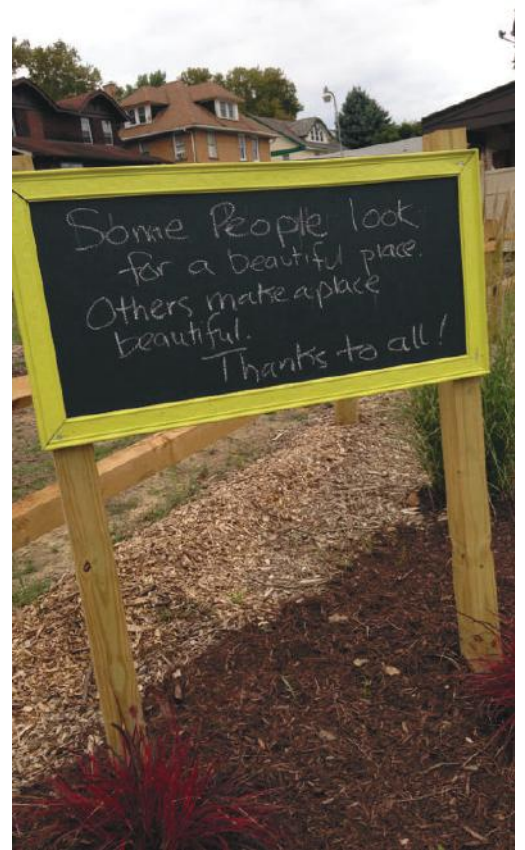 Some People look
for a beautiful place.
Others make a place
beautiful.
Thanks to all!